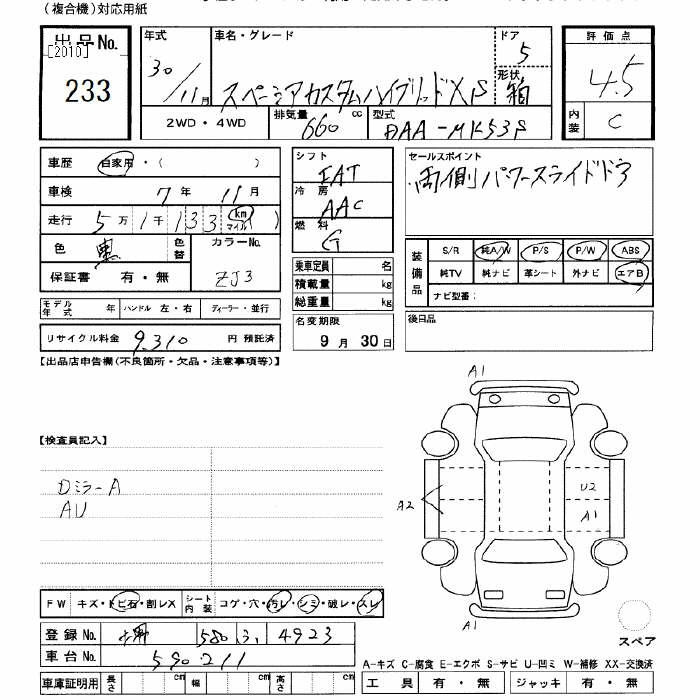 (複合機)対応用紙
出品No. [2010] 233
年式 30/11月
車名・グレード スペーシアカスタムハイブリッドXS
ドア 5
形状 箱
2WD・4WD
排気量 660 cc
型式 DAA-MK53S
評価点 4.5
内装 C
車歴 自家用・( )
車検 7年 11月
走行 5万1千133 km マイル )
色 黒 色替
カラーNo. ZJ3
保証書 有・無
モデル年式 年 ハンドル 左・右 ディーラー・並行
リサイクル料金 9,310 円 預託済
シフト FAT
冷房 AAC
燃料 G
乗車定員 名
積載量 kg
総重量 kg
名変期限
9月30日
セールスポイント
両側パワースライドドア
装備品 S/R 純A/W P/S P/W ABS
純TV 純ナビ 革シート 外ナビ エアB
ナビ型番:
後日品
【出品店申告欄(不良箇所・欠品・注意事項等)】
【検査員記入】
Dミラー A
AU
A1
A2
U2
A1
A1
スペア
FW キズ・トビ石・割レX
シート内装 コゲ・穴・汚レ・シミ・破レ・スレ
登録No. 580 4923
車台No. 590211
車庫証明用 長さ cm 幅 cm 高さ cm
A-キズ C-腐食 E-エクボ S-サビ U-凹ミ W-補修 XX-交換済
工具 有・無 ジャッキ 有・無